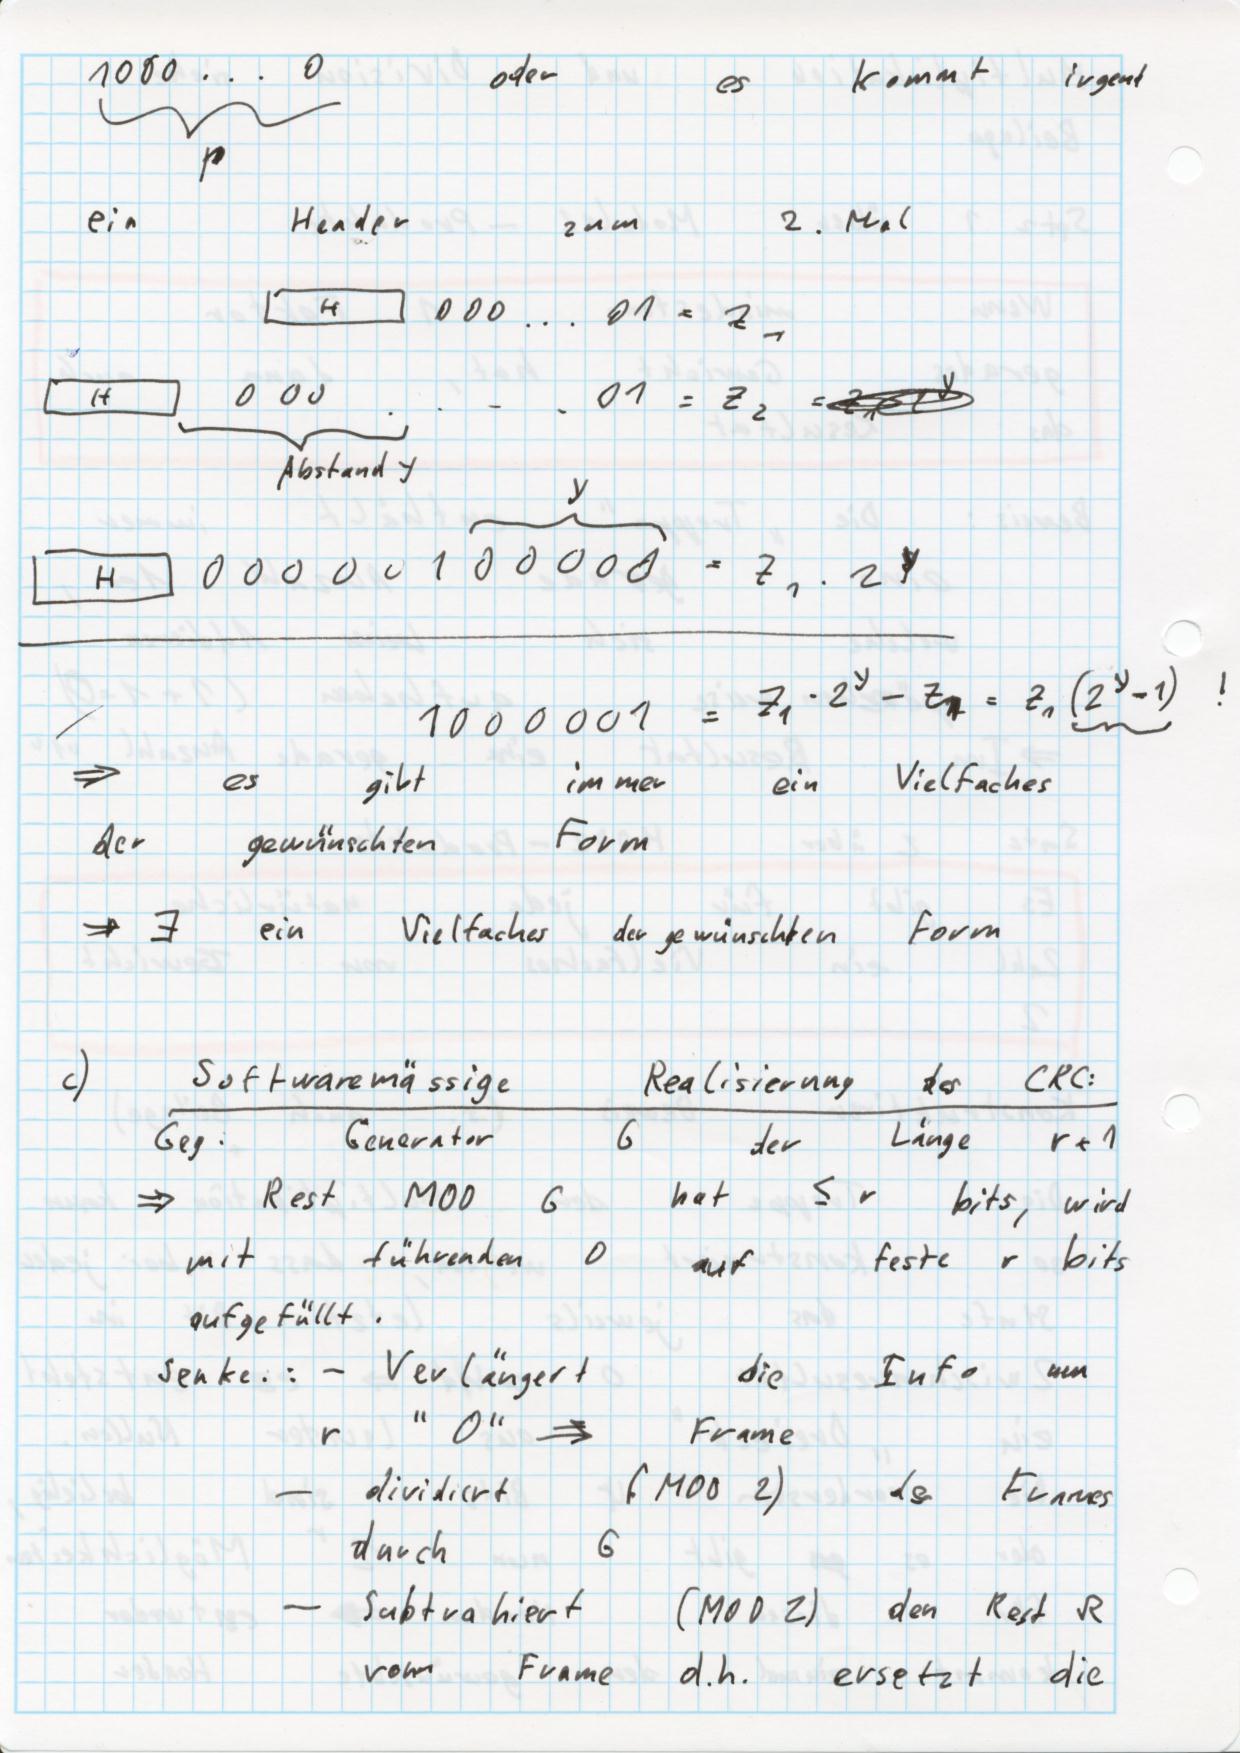 1000 . . . 0 oder es kommt irgent
p
ein Header zum 2. Mal
H 000 ... 01 = Z1
H 000 . . - . 01 = Z2 =
Abstand y
y
H 00000100000 = Z1 . 2^y
1000001 = Z1 · 2^y - Z1 = Z1 (2^y - 1) !
⇒ es gibt immer ein Vielfaches
der gewünschten Form
⇒ ∃ ein Vielfaches der gewünschten Form
c) Softwaremässige Realisierung des CRC:
Geg: Generator G der Länge r+1
⇒ Rest MOD G hat ≤ r bits, wird
mit führenden 0 auf feste r bits
aufgefüllt.
Senke.: - Verlängert die Info um
r "0" ⇒ Frame
- dividiert (MOD 2) des Frames
durch G
- Subtrahiert (MOD 2) den Rest R
vom Frame d.h. ersetzt die